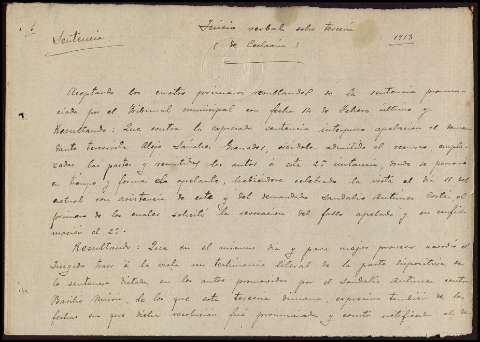 Sentencia
Juicio verbal sobre tercería
(de Coslada)
1913
Aceptando los cuatro primeros resultandos de la sentencia pronun-
ciada por el Tribunal municipal con fecha 14 de Febrero último y
Resultando: Que contra la expresada sentencia interpuso apelación el deman-
dante tercerista Alejo Sánchez Granados, siéndole admitido el recurso, empla-
zadas las partes y remitidos los autos á esta 2ª instancia, donde se personó
en tiempo y forma el apelante, habiéndose celebrado la vista el día 11 del
actual con asistencia de este y del demandado Sandalio Antúnez
primero de los cuales solicitó la revocación del fallo apelado y su confir-
mación el 2º.
Resultando: Que en el mismo día y para mejor proveer acordó el
Juzgado traer á la vista un testimonio literal de la parte dispositiva de
la sentencia dictada en los autos promovidos por el Sandalio Antúnez contra
de los que esta tercería dimana, expresivo también de las
fechas en que dicha resolución fué pronunciada y